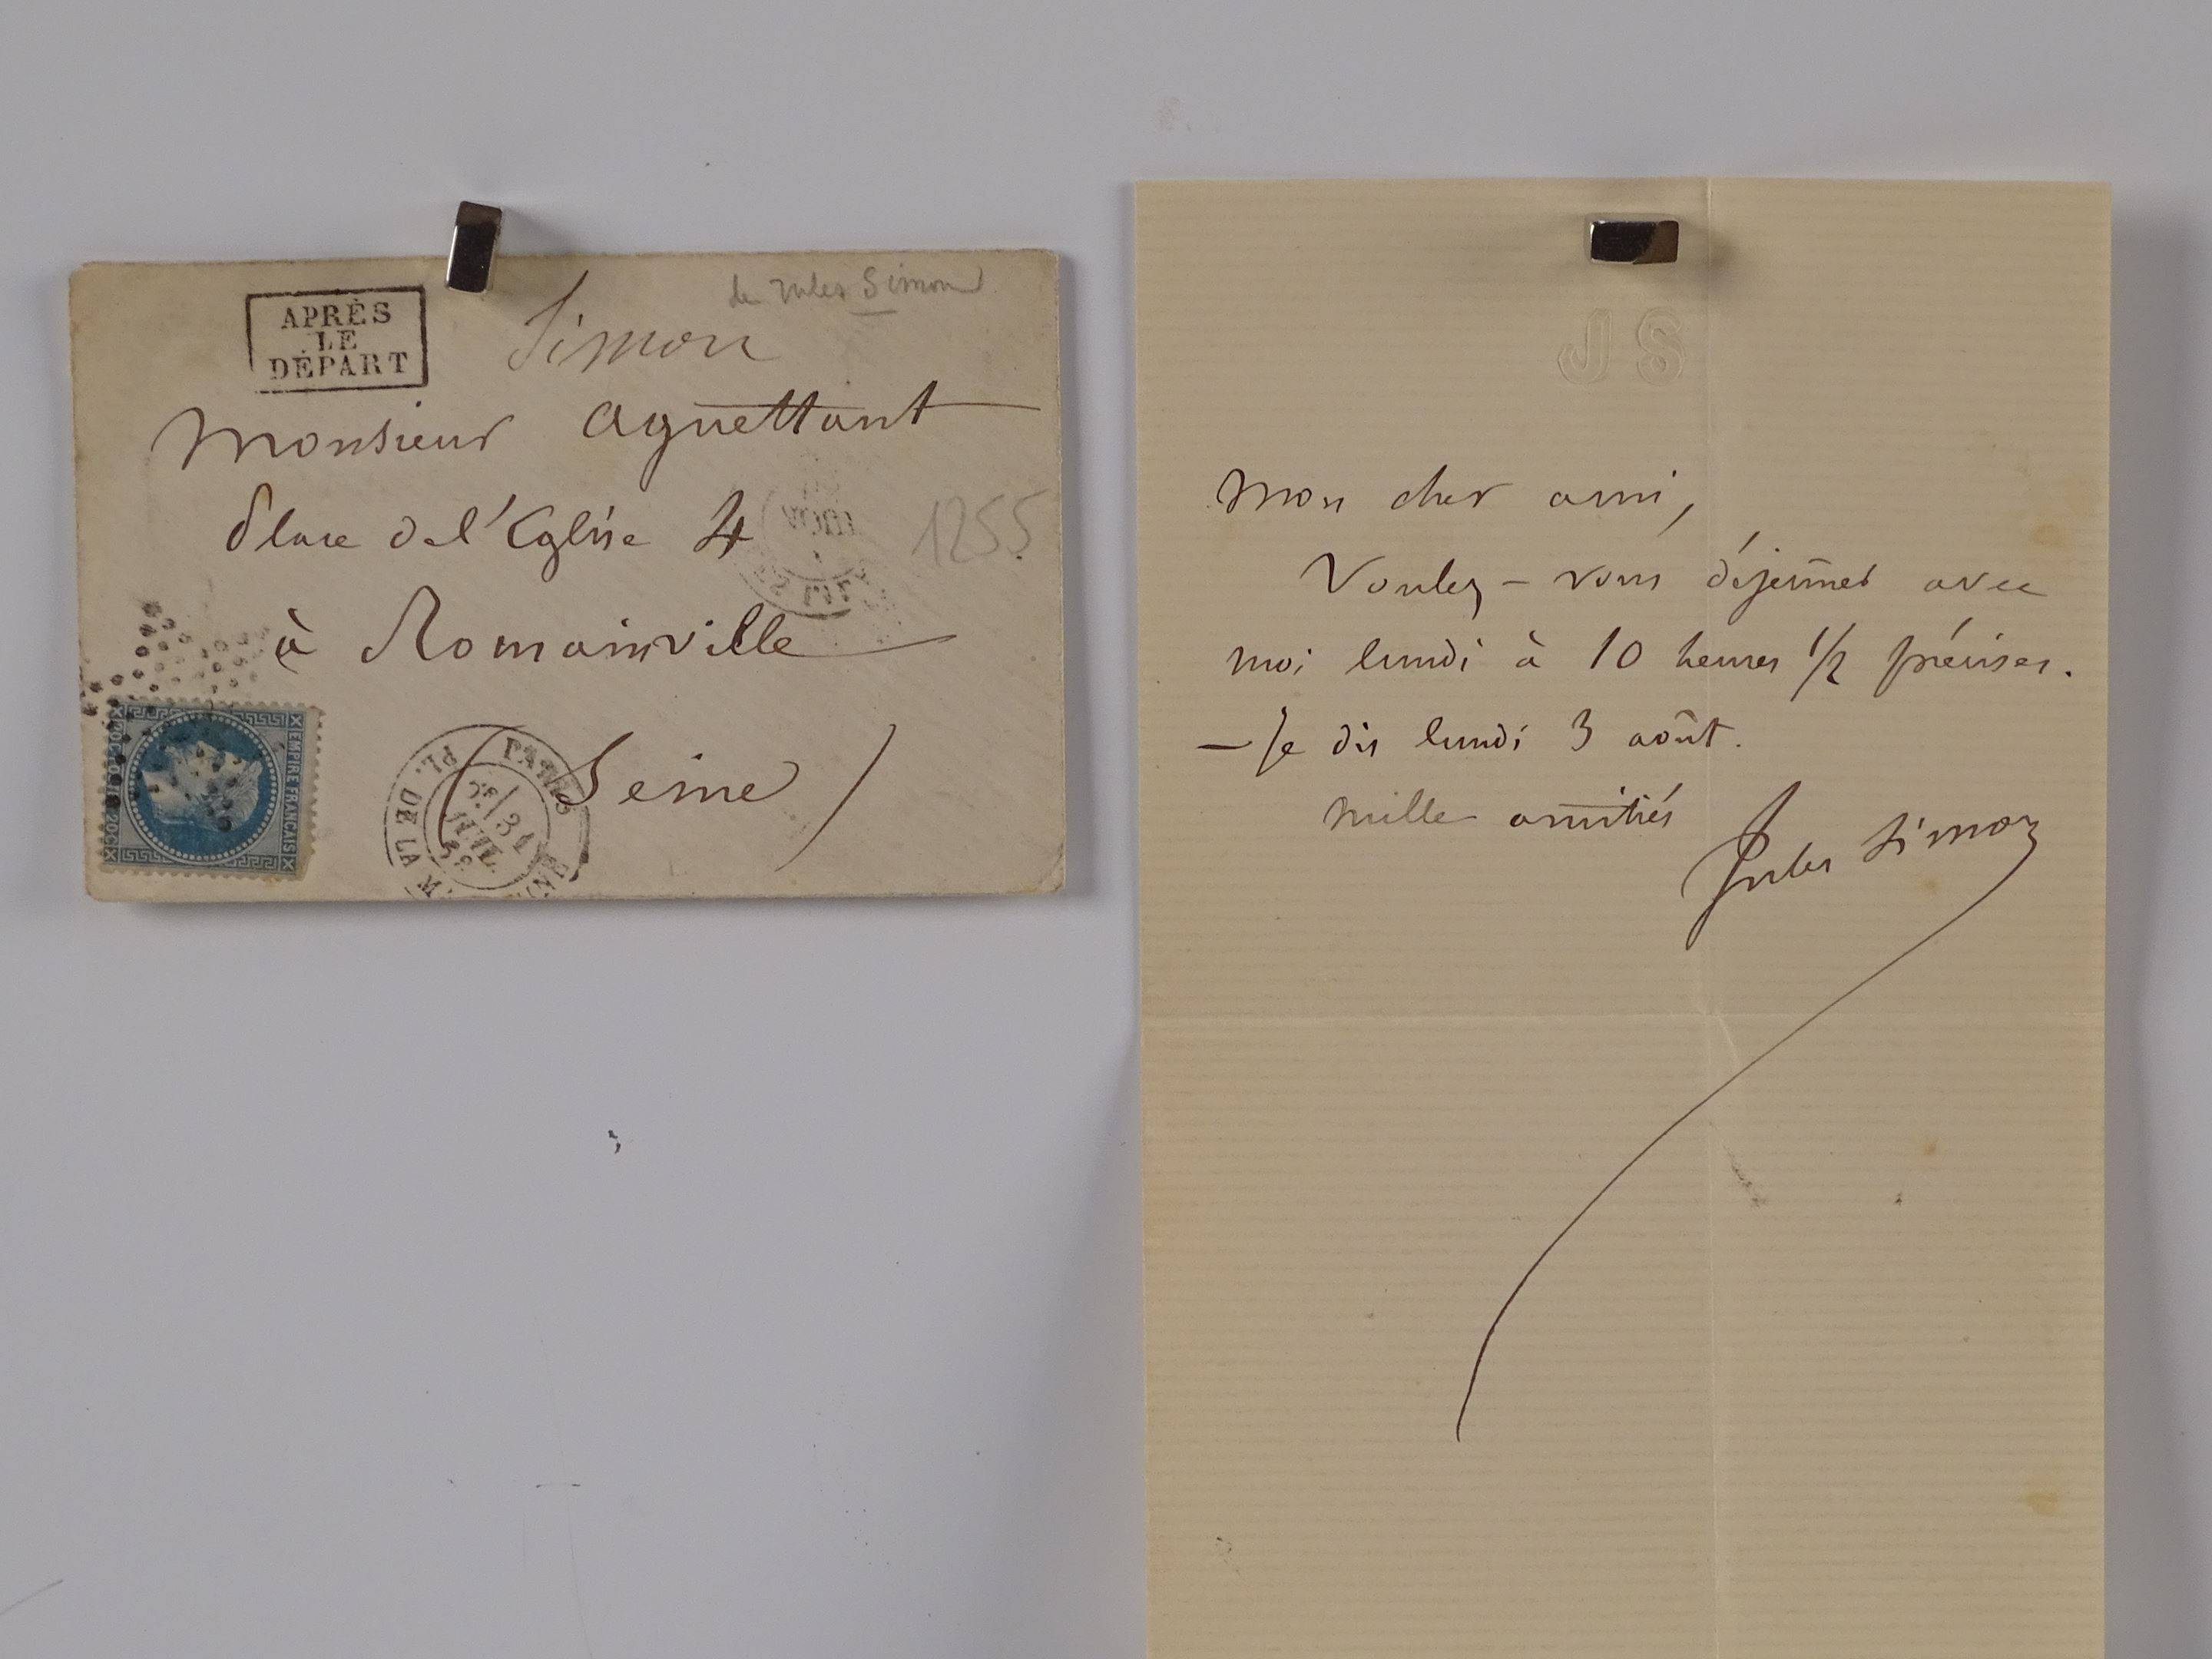 APRÈS
LE
DÉPART
de Jules Simon
Simon
Monsieur Aguettant
Place de l'Eglise 4
1255
à Romainville
(Seine)
EMPIRE FRANCAIS
20C 20C
PARIS
PL. DE LA M
31
JUIL.
68
JS
Mon cher ami,
Voulez-vous déjeûner avec
moi lundi à 10 heures 1/2 précises.
— Je dis lundi 3 août.
Mille amitiés
Jules Simon